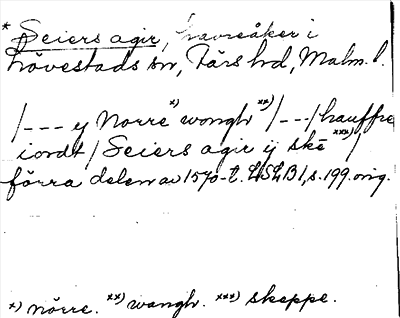 * Seiers agir, havreåker i
Lövestads sn, Färs hd, Malm. l.
/--- y Norre *) wongh **) /---/ hauffre
iordt / Seiers agir ij ske ***) /
förra delen av 1570-t. LSLB 1, s. 199. orig.
*) nörre. **) wangh. ***) skeppe.